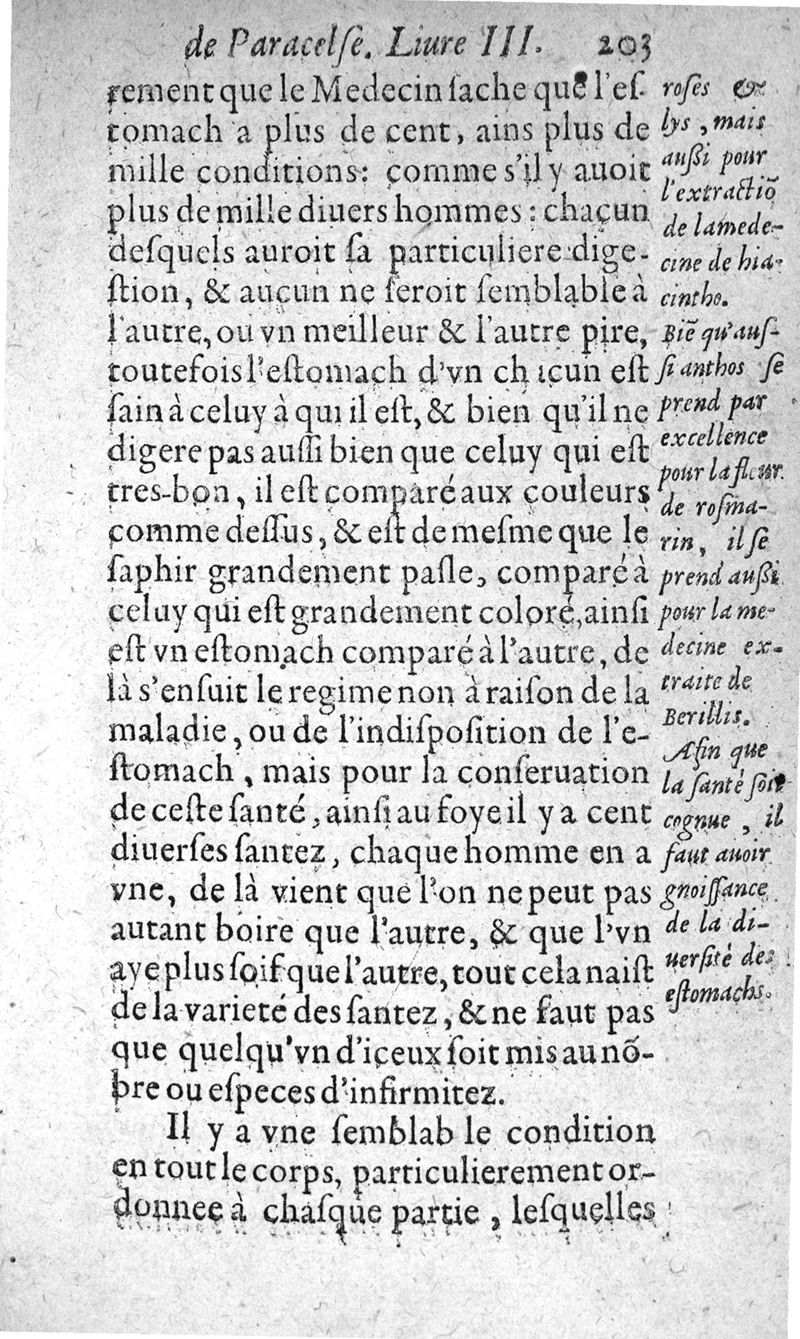 de Paracelſe. Liure III. 203
rement que le Medecin ſache que l'eſ-
tomach a plus de cent, ains plus de
mille conditions: comme s'il y auoit
plus de mille diuers hommes : chacun
deſquels auroit ſa particuliere dige-
ſtion, & aucun ne ſeroit ſemblable à
l'autre, ou vn meilleur & l'autre pire,
toutefois l'eſtomach d'vn ch icun eſt
ſain à celuy à qui il eſt, & bien qu'il ne
digere pas auſſi bien que celuy qui eſt
tres-bon, il eſt comparé aux couleurs
comme deſſus, & eſt de meſme que le
ſaphir grandement paſle, comparé à
celuy qui eſt grandement coloré, ainſi
eſt vn eſtomach comparé à l'autre, de
là s'enſuit le regime non à raiſon de la
maladie, ou de l'indiſpoſition de l'e-
ſtomach, mais pour la conſeruation
de ceſte ſanté, ainſi au foye il y a cent
diuerſes ſantez, chaque homme en a
vne, de là vient que l'on ne peut pas
autant boire que l'autre, & que l'vn
aye plus ſoif que l'autre, tout cela naiſt
de la varieté des ſantez, & ne faut pas
que quelqu'vn d'iceux ſoit mis au nõ-
bre ou eſpeces d'infirmitez.
Il y a vne ſemblab le condition
en tout le corps, particulierement or-
donnee à chaſque partie, leſquelles
roſes &
lys, mais
auſſi pour
l'extractiõ
de la mede-
cine de hia-
cintho.
Biẽ qu'auſ-
ſi anthos ſe
prend par
excellence
pour la fleur
de roſma-
rin, il ſe
prend auſſi
pour la me-
decine ex-
traite de
Berillis.
Afin que
la ſanté ſoit
cognue, il
faut auoir
gnoiſſance
de la di-
uerſité des
eſtomachs.